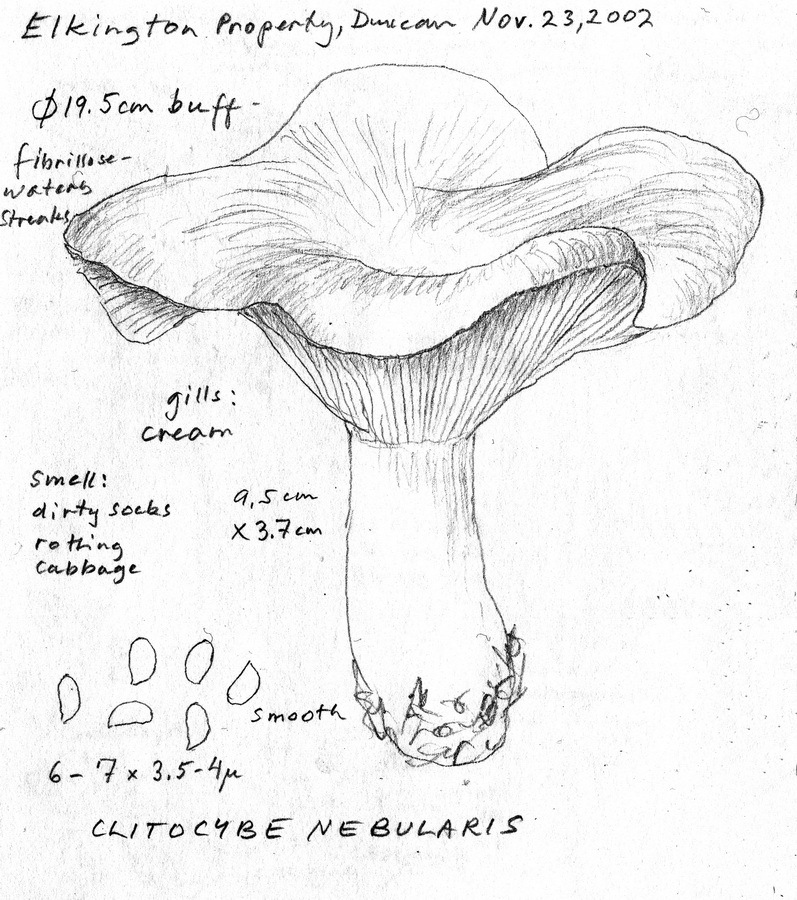 Elkington Property, Duncan Nov. 23, 2002
φ 19.5cm buff -
fibrillose-
watery
streaks
gills:
cream
smell:
dirty socks
rotting
cabbage
9,5 cm
x 3.7 cm
smooth
6 - 7 x 3.5-4μ
CLITOCYBE NEBULARIS